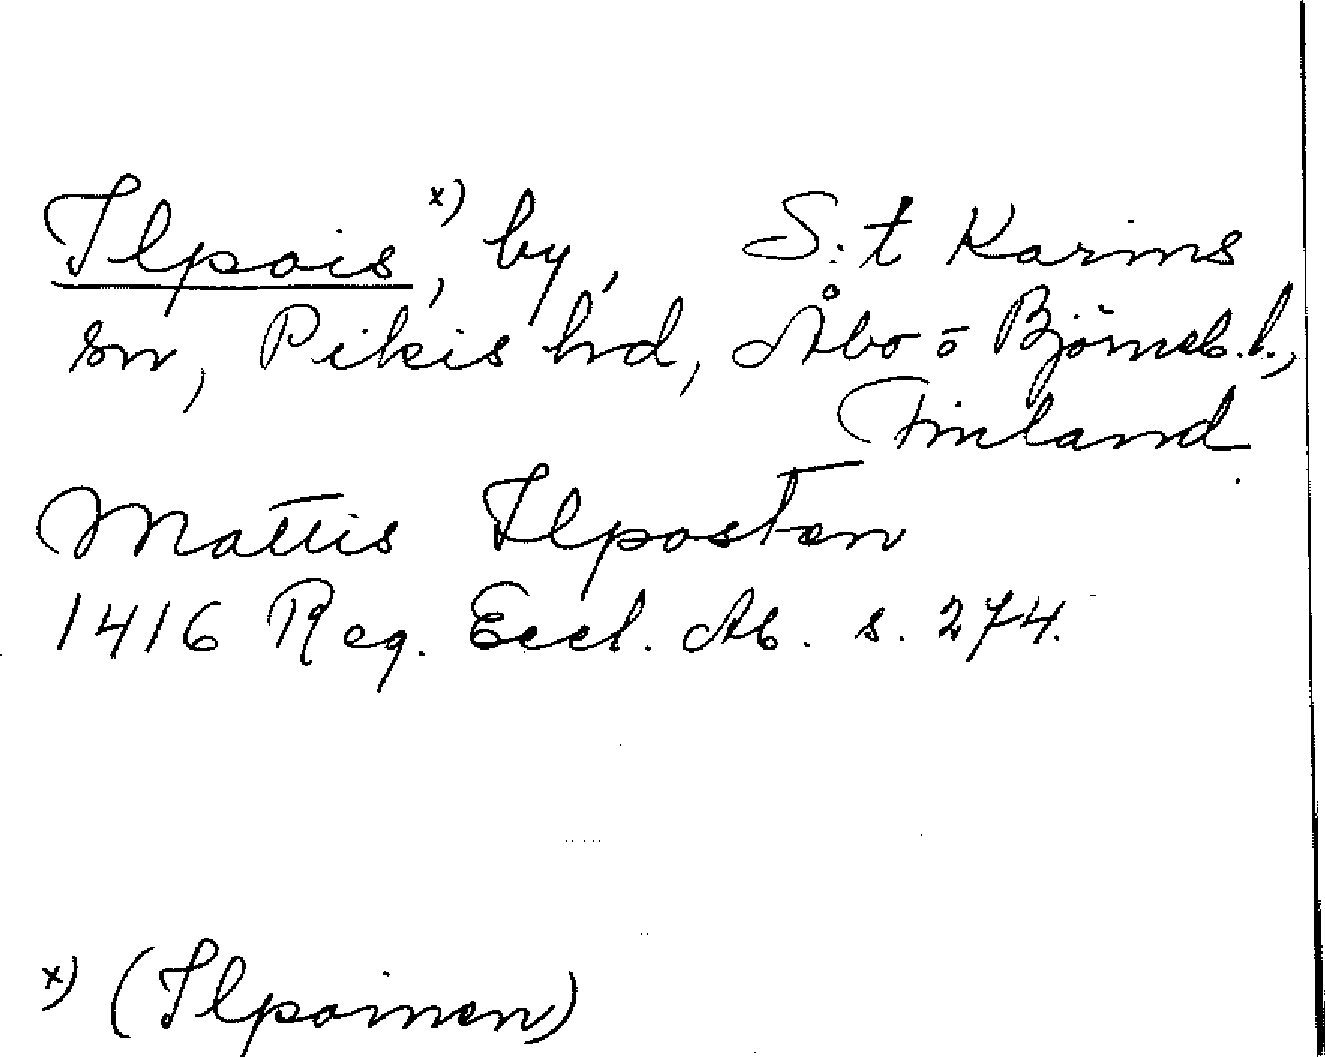 Ilpois x), by, S:t Karins
sn, Pikis hd, Åbo o Björneb. l.,
Finland.
Mattis Ilposten
1416 Reg. Eccl. Ab. s. 274.
x) (Ilpoinen)